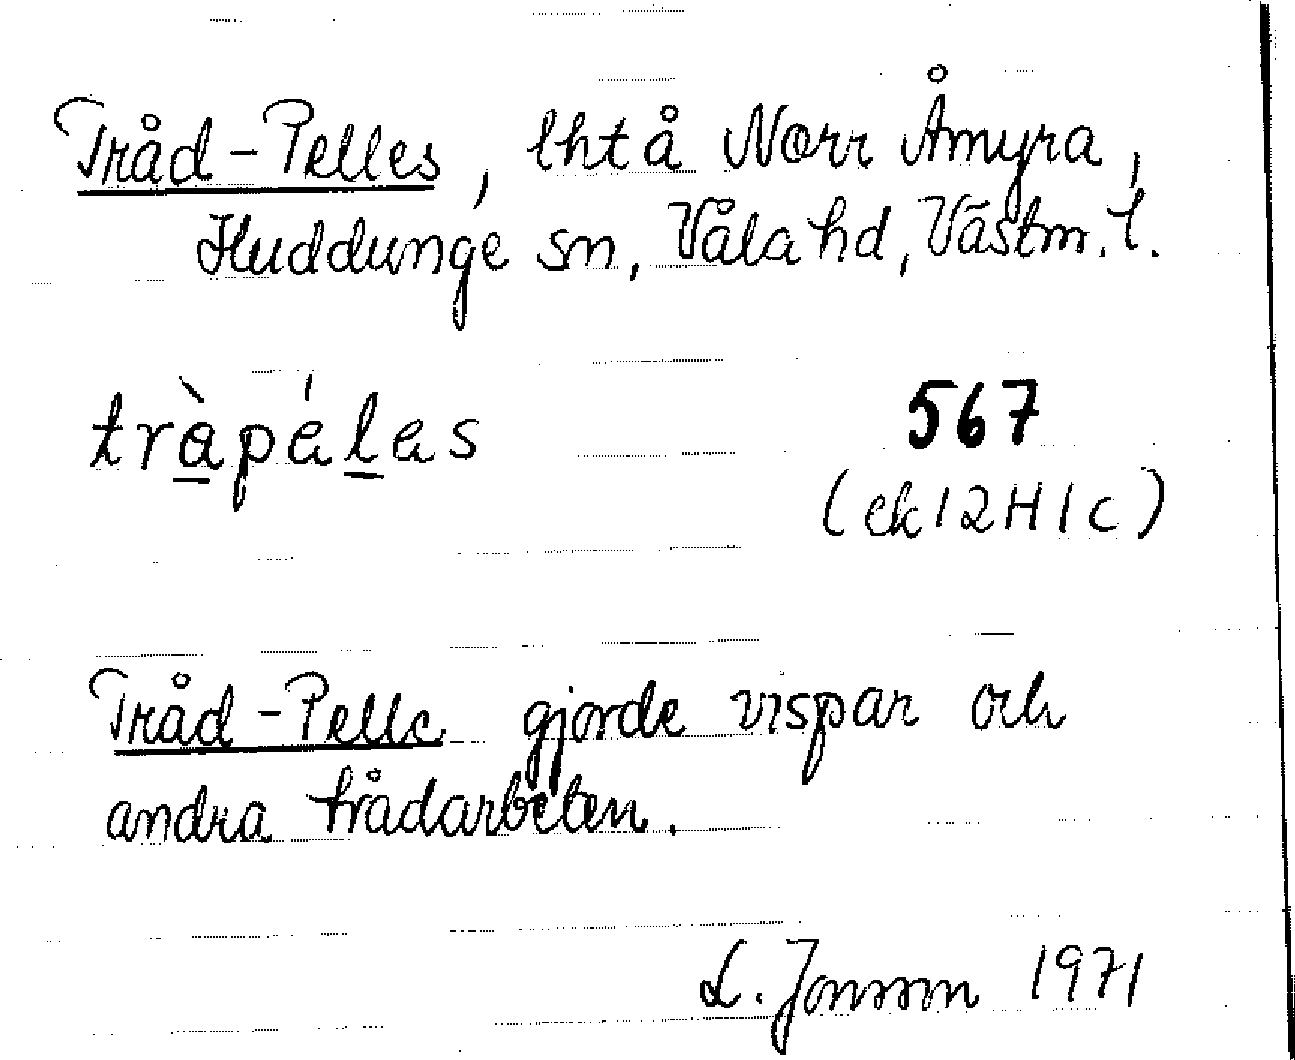 Tråd-Pelles, lht å Norr Åmyra,
Huddunge sn, Våla hd, Västm. l.
tràpéles
567
(ek 12H1c)
Tråd-Pelle gjorde vispar och
andra trådarbeten.
L. Jonsson 1971